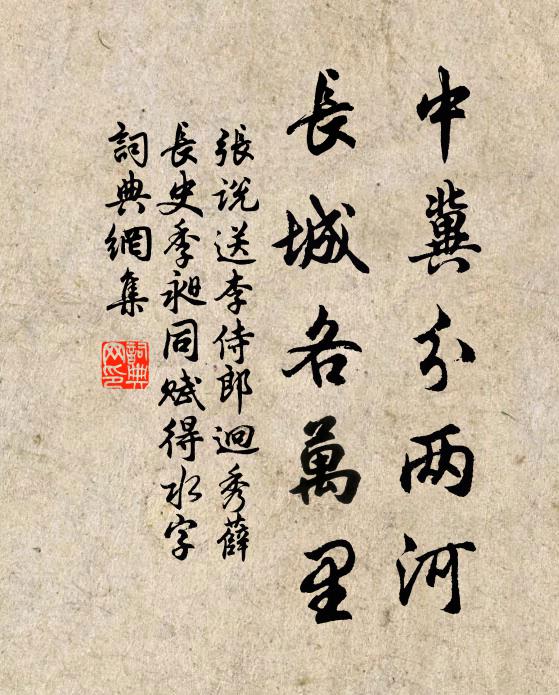 中冀分两河
長城各萬里
張說送李侍郎迥秀薛
長史季昶同賦得水字
詞典網集
詞典
网印